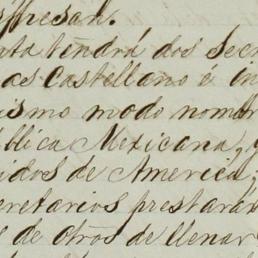 espresan.
nta tendrá dos Secr
as Castellano é in
ismo modo nombr
ública Mexicana, y
idos de America;
cretarios prestarán
s de otros de llenar